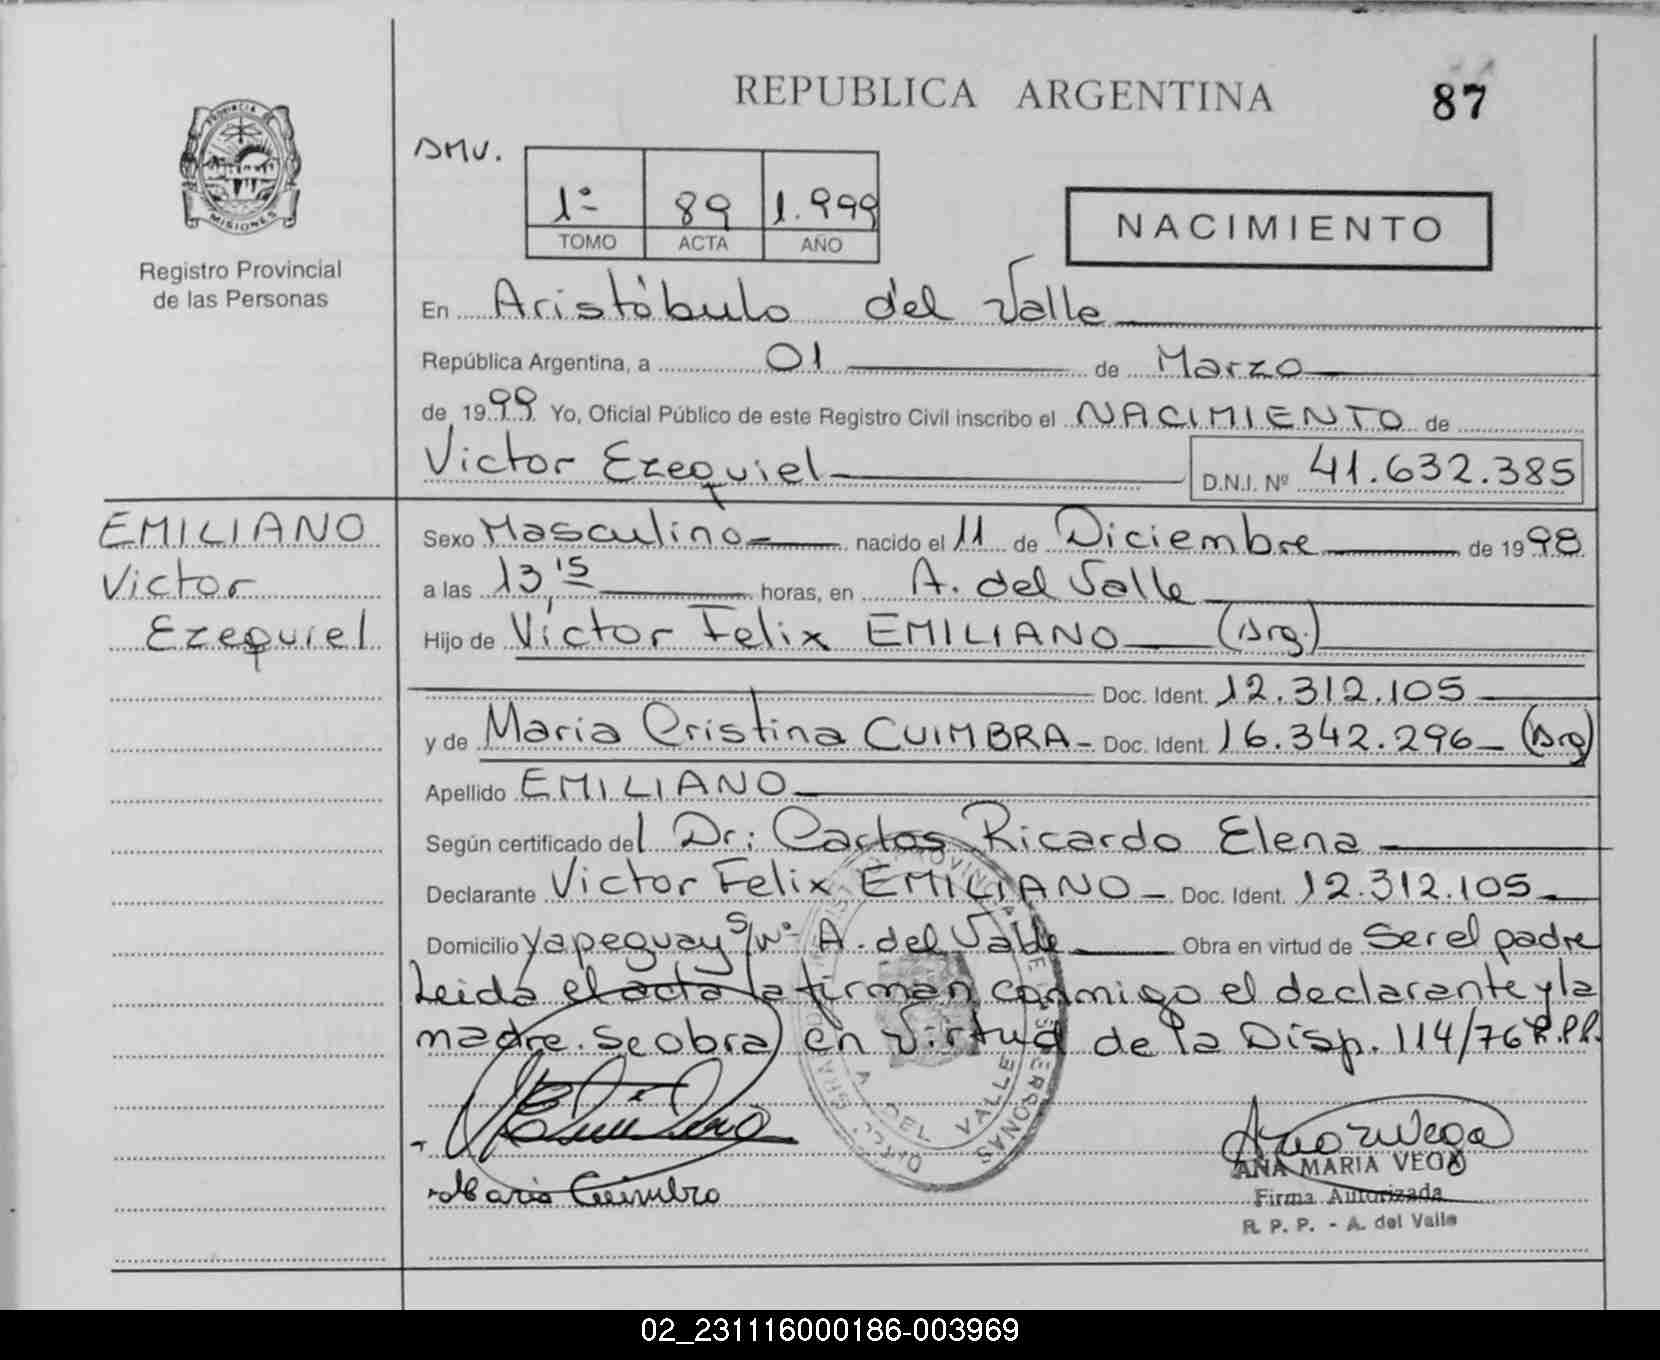 REPUBLICA ARGENTINA
87
PROVINCIA DE
MISIONES
Registro Provincial
de las Personas
DMV.
1º 89 1.999
TOMO ACTA AÑO
NACIMIENTO
En Aristóbulo del Valle
República Argentina, a 01 de Marzo
de 1999 Yo, Oficial Público de este Registro Civil inscribo el NACIMIENTO de
Victor Ezequiel D.N.I. Nº 41.632.385
EMILIANO
Victor
Ezequiel
Sexo Masculino nacido el 11 de Diciembre de 1998
a las 13,15 horas, en A. del Valle
Hijo de Victor Felix EMILIANO (Arg.)
Doc. Ident. 12.312.105
y de Maria Cristina CUIMBRA - Doc. Ident. 16.342.296 (Arg)
Apellido EMILIANO
Según certificado del Dr: Carlos Ricardo Elena
Declarante Victor Felix EMILIANO - Doc. Ident. 12.312.105
Domicilio Yapeguay S/Nº A. del Valle Obra en virtud de Ser el padre
Leida el acta la firman conmigo el declarante y la
madre. Se obra en virtud de la Disp. 114/76 R.P.P.
A. DEL VALLE
Maria Cuimbra
ANA MARIA VEGA
Firma Autorizada
R. P. P. - A. del Valle
02_231116000186-003969